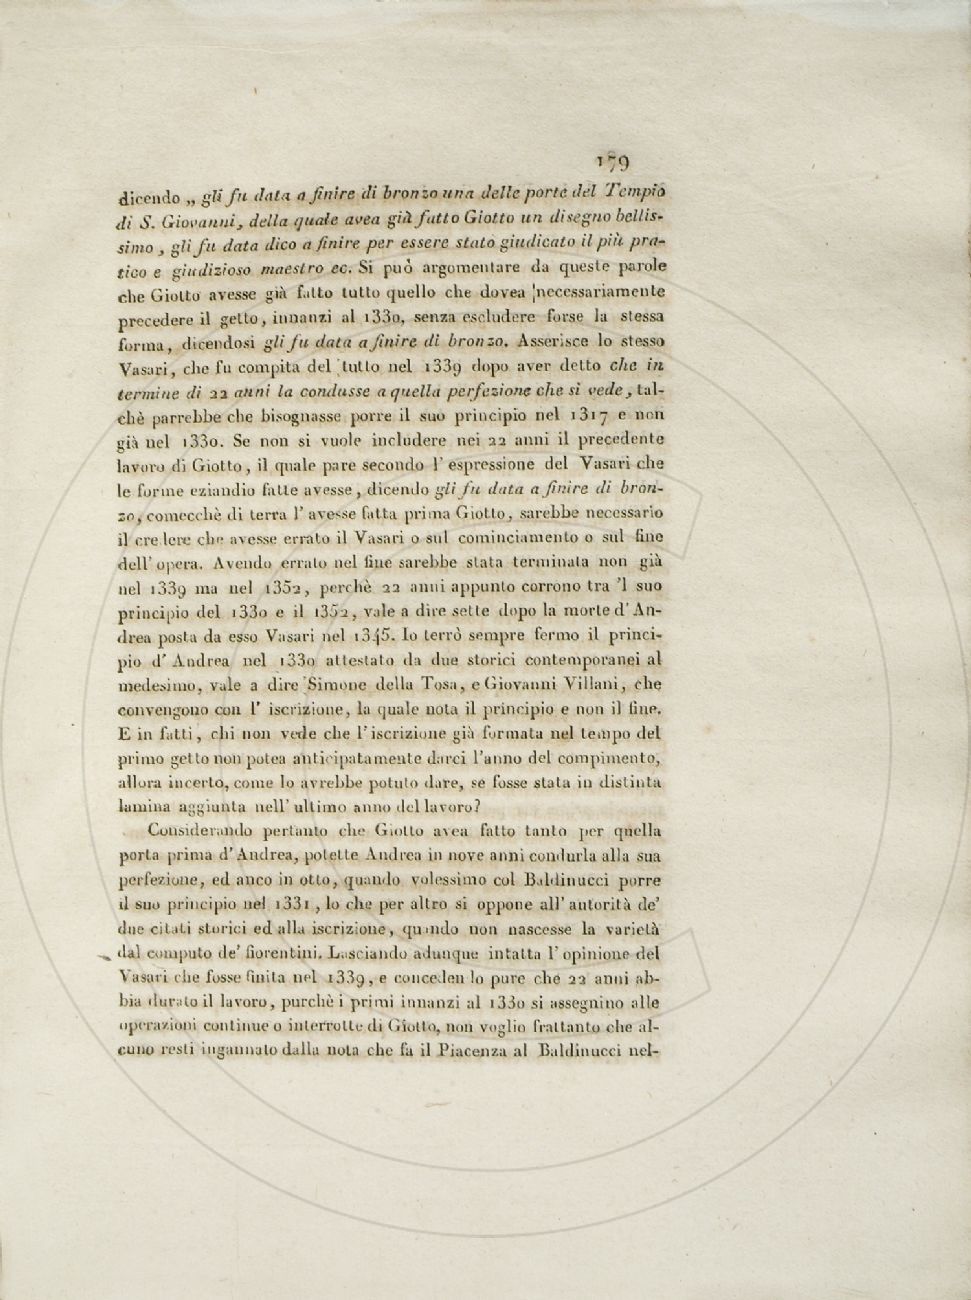 179
dicendo „ gli fu data a finire di bronzo una delle porte del Tempio
di S. Giovanni, della quale avea già fatto Giotto un disegno bellis-
simo, gli fu data dico a finire per essere stato giudicato il più pra-
tico e giudizioso maestro ec. Si può argomentare da queste parole
che Giotto avesse già fatto tutto quello che dovea necessariamente
precedere il getto, innanzi al 1330, senza escludere forse la stessa
forma, dicendosi gli fu data a finire di bronzo. Asserisce lo stesso
Vasari, che fu compita del tutto nel 1339 dopo aver detto che in
termine di 22 anni la condusse a quella perfezione che si vede, tal-
chè parrebbe che bisognasse porre il suo principio nel 1317 e non
già nel 1330. Se non si vuole includere nei 22 anni il precedente
lavoro di Giotto, il quale pare secondo l' espressione del Vasari che
le forme eziandio fatte avesse, dicendo gli fu data a finire di bron-
zo, comecchè di terra l' avesse fatta prima Giotto, sarebbe necessario
il credere che avesse errato il Vasari o sul cominciamento o sul fine
dell' opera. Avendo errato nel fine sarebbe stata terminata non già
nel 1339 ma nel 1352, perchè 22 anni appunto corrono tra 'l suo
principio del 1330 e il 1352, vale a dire sette dopo la morte d' An-
drea posta da esso Vasari nel 1345. Io terrò sempre fermo il princi-
pio d' Andrea nel 1330 attestato da due storici contemporanei al
medesimo, vale a dire Simone della Tosa, e Giovanni Villani, che
convengono con l' iscrizione, la quale nota il principio e non il fine.
E in fatti, chi non vede che l' iscrizione già formata nel tempo del
primo getto non potea anticipatamente darci l'anno del compimento,
allora incerto, come lo avrebbe potuto dare, se fosse stata in distinta
lamina aggiunta nell' ultimo anno del lavoro?
Considerando pertanto che Giotto avea fatto tanto per quella
porta prima d' Andrea, potette Andrea in nove anni condurla alla sua
perfezione, ed anco in otto, quando volessimo col Baldinucci porre
il suo principio nel 1331, lo che per altro si oppone all' autorità de'
due citati storici ed alla iscrizione, quando non nascesse la varietà
dal computo de' fiorentini. Lasciando adunque intatta l' opinione del
Vasari che fosse finita nel 1339, e concedendo pure che 22 anni ab-
bia durato il lavoro, purchè i primi innanzi al 1330 si assegnino alle
operazioni continue o interrotte di Giotto, non voglio frattanto che al-
cuno resti ingannato dalla nota che fa il Piacenza al Baldinucci nel-